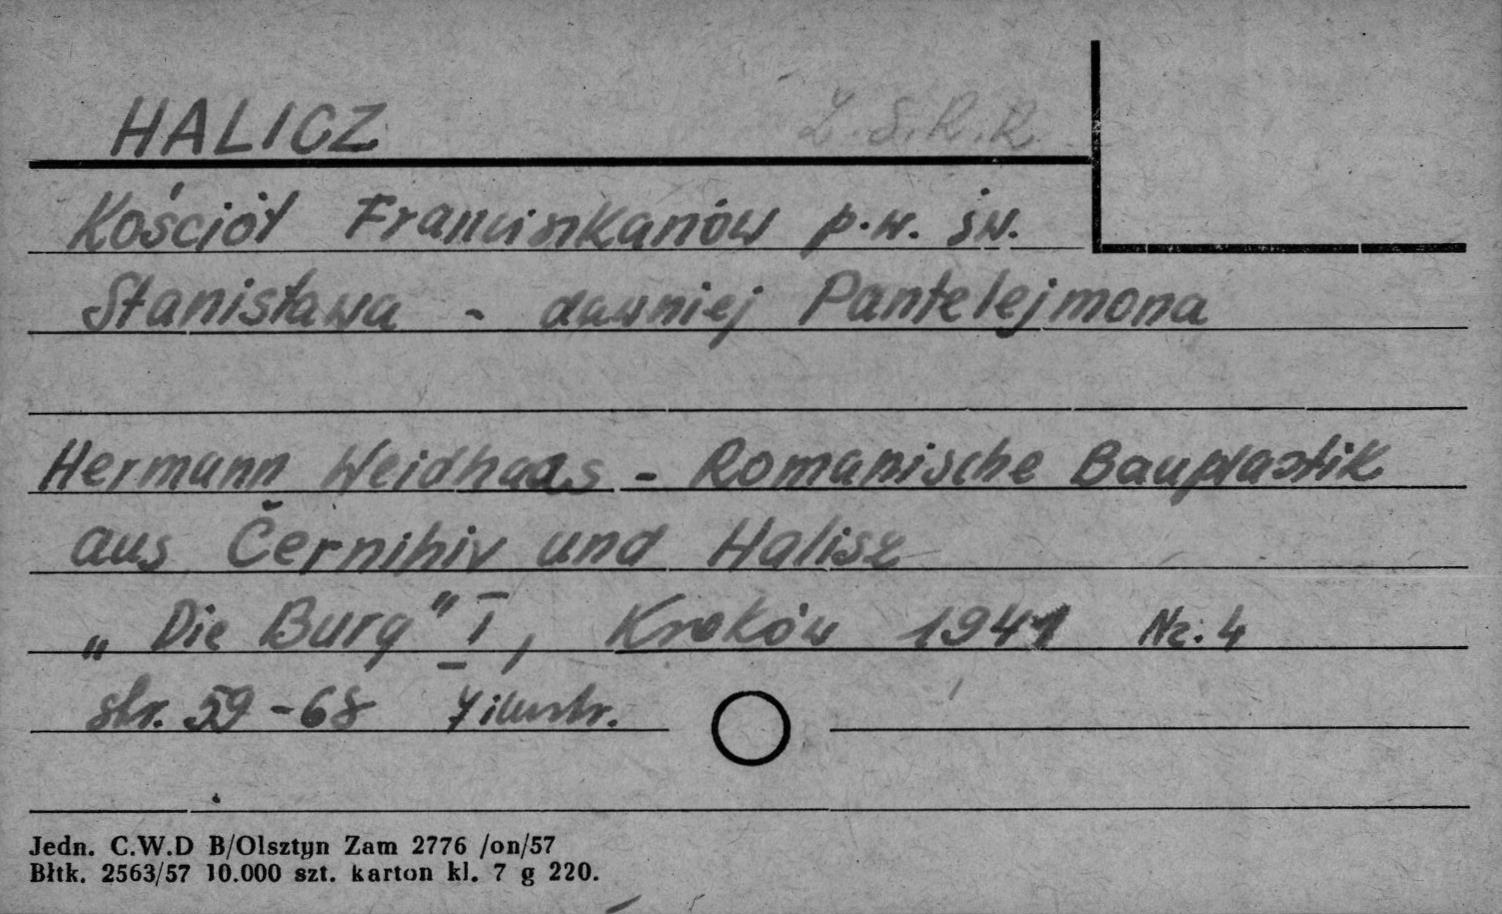 HALICZ Z.S.R.R.
Kościół Franciszkanów p.w. św.
Stanisława - dawniej Pantelejmona
Hermann Weidhaas - Romanische Bauplastik
aus Černihiv und Halisz
„Die Burg" I, Kraków 1941 Nr. 4
str. 59-68 7 illustr.
Jedn. C.W.D B/Olsztyn Zam 2776 /on/57
Błtk. 2563/57 10.000 szt. karton kl. 7 g 220.